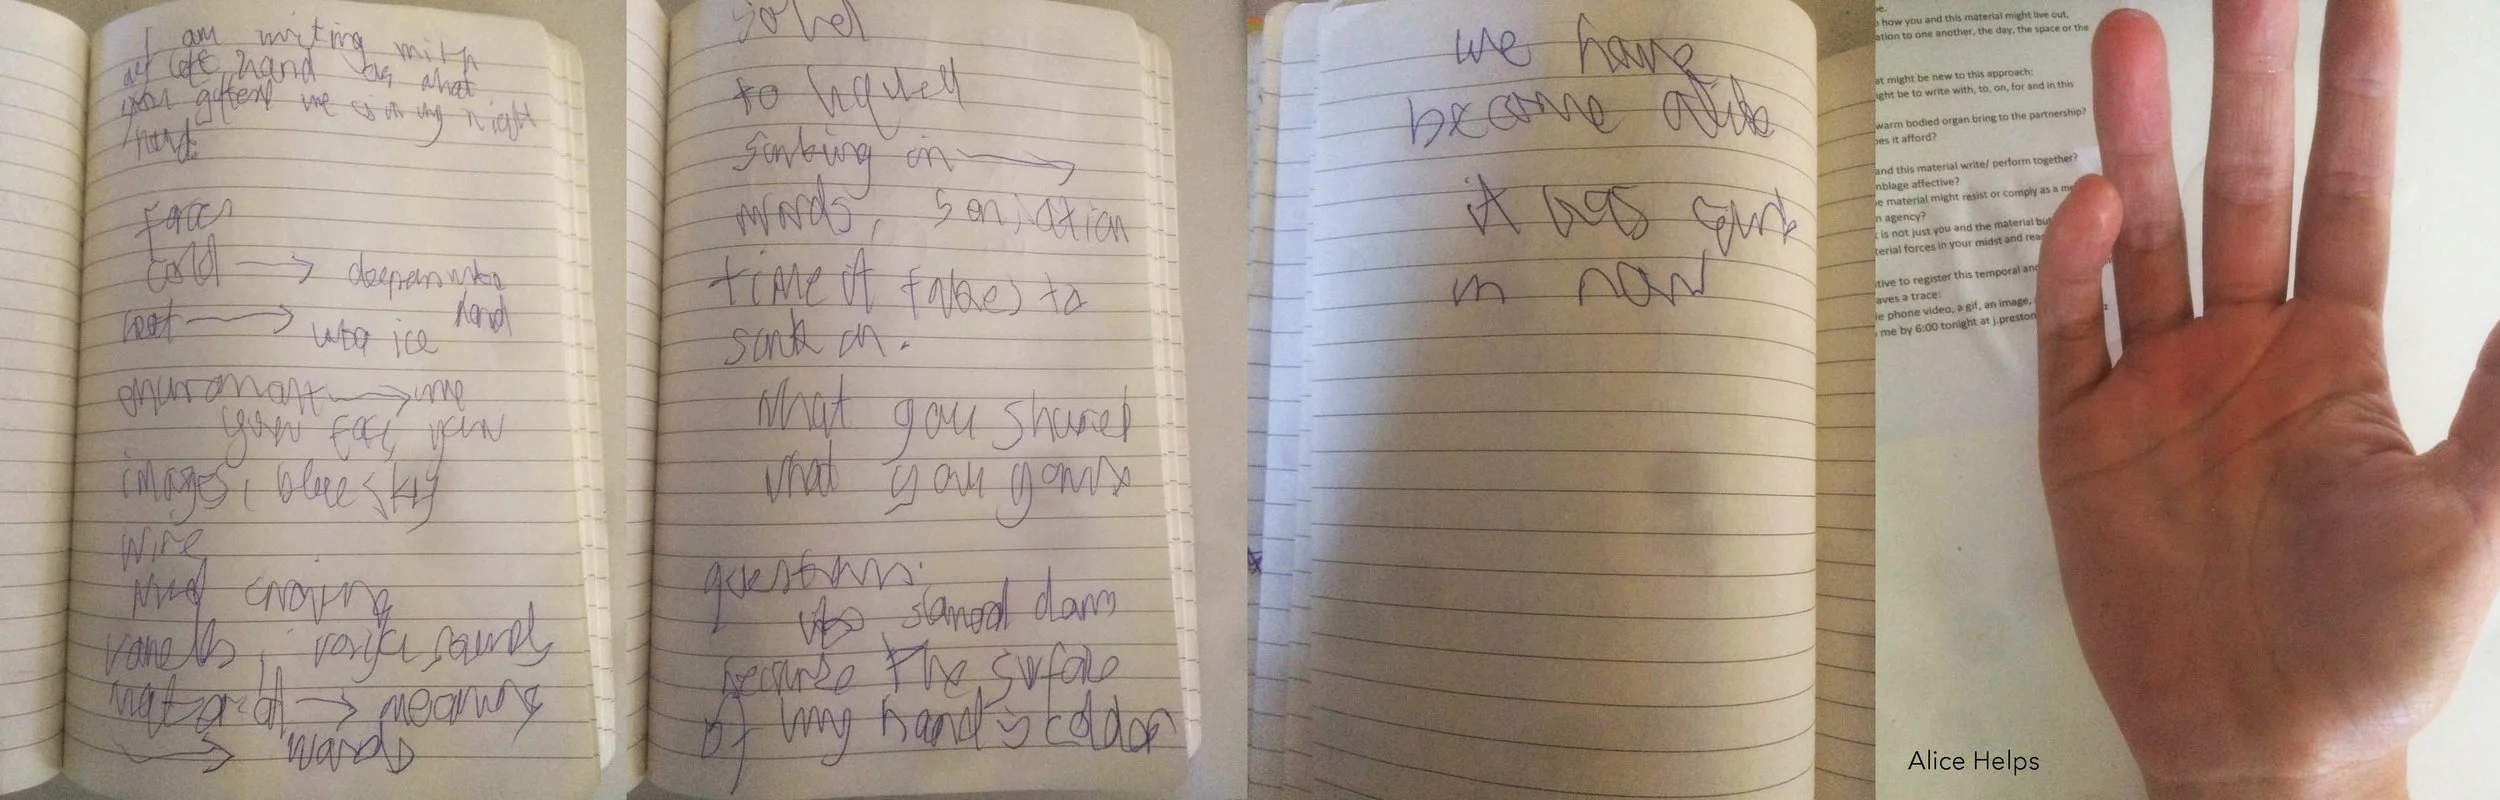 I am writing with
my left hand as what
you gifted me is in my right
hand.
Faces
cold → deepens into
hand
heat → into ice
environment → me
your face, your
images, blue sky
wire
Mind
vowels, voice, sound
material → meaning
→ words
solid
to liquid
sinking in →
words, sensation
time it takes to
sink in.
what you shared
what you gave
questions:
its slowed down
because the surface
of my hand is colder
we have
become alike
it has sunk
in now
e.
how you and this material might live out,
ation to one another, the day, the space or the
at might be new to this approach:
ight be to write with, to, on, for and in this
warm bodied organ bring to the partnership?
es it afford?
and this material write/ perform together?
nblage affective?
e material might resist or comply as a me
n agency?
is not just you and the material but
terial forces in your midst and rea
tive to register this temporal and
aves a trace:
le phone video, a gif, an image,
me by 6:00 tonight at j.preston
Alice Helps